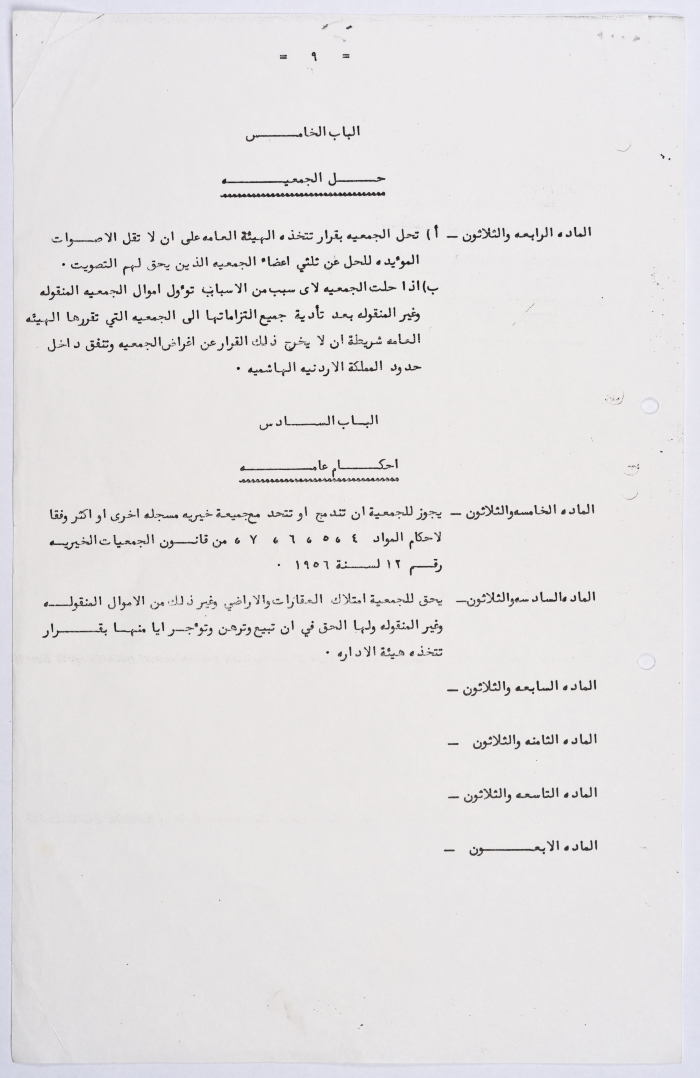 = ٩ =
الباب الخامـــــــس
حـــــل الجمعيـــــــــــه
الماده الرابعه والثلاثون ــ أ) تحل الجمعيه بقرار تتخذه الهيئة العامه على ان لا تقل الاصـــوات
المؤيده للحل عن ثلثي اعضاء الجمعيه الذين يحق لهم التصويت ٠
ب) اذا حلت الجمعيه لاى سبب من الاسباب تؤول اموال الجمعيه المنقوله
وغير المنقوله بعد تأدية جميع التزاماتها الى الجمعيه التي تقررها الهيئه
العامه شريطة ان لا يخرج ذلك القرار عن اغراض الجمعيه وتنفق داخل
حدود المملكة الاردنيه الهاشميه ٠
البـاب الســـــادس
احكـــــام عامـــــــــه
الماده الخامسه والثلاثون ــ يجوز للجمعية ان تندمج او تتحد مع جميعة خيريه مسجله اخرى او اكثر وفقا
لاحكام المواد ٤ ،٥ ،٦ ، ٧ ، من قانـــون الجمعيات الخيريــه
رقـــم ١٢ لسـنة ١٩٥٦ ٠
الماده السادسه والثلاثون ــ يحق للجمعية امتلاك العقارات والاراضي وغير ذلك من الاموال المنقولــه
وغير المنقوله ولها الحق في ان تبيع وترهن وتؤجر ايا منهـا بقـــــرار
تتخذه هيئة الاداره ٠
الماده السابعه والثلاثون ــ
الماده الثامنه والثلاثون ــ
الماده التاسعه والثلاثون ــ
الماده الابعـــــــون ــ